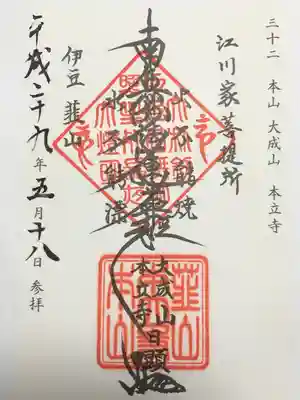 三十二 本山 大成山 本立寺
江川家菩提所
火不能焼
南無妙法蓮華経
水不能漂
大成山
本立寺
伊豆 韮山
平成二十九年五月十八日 参拝